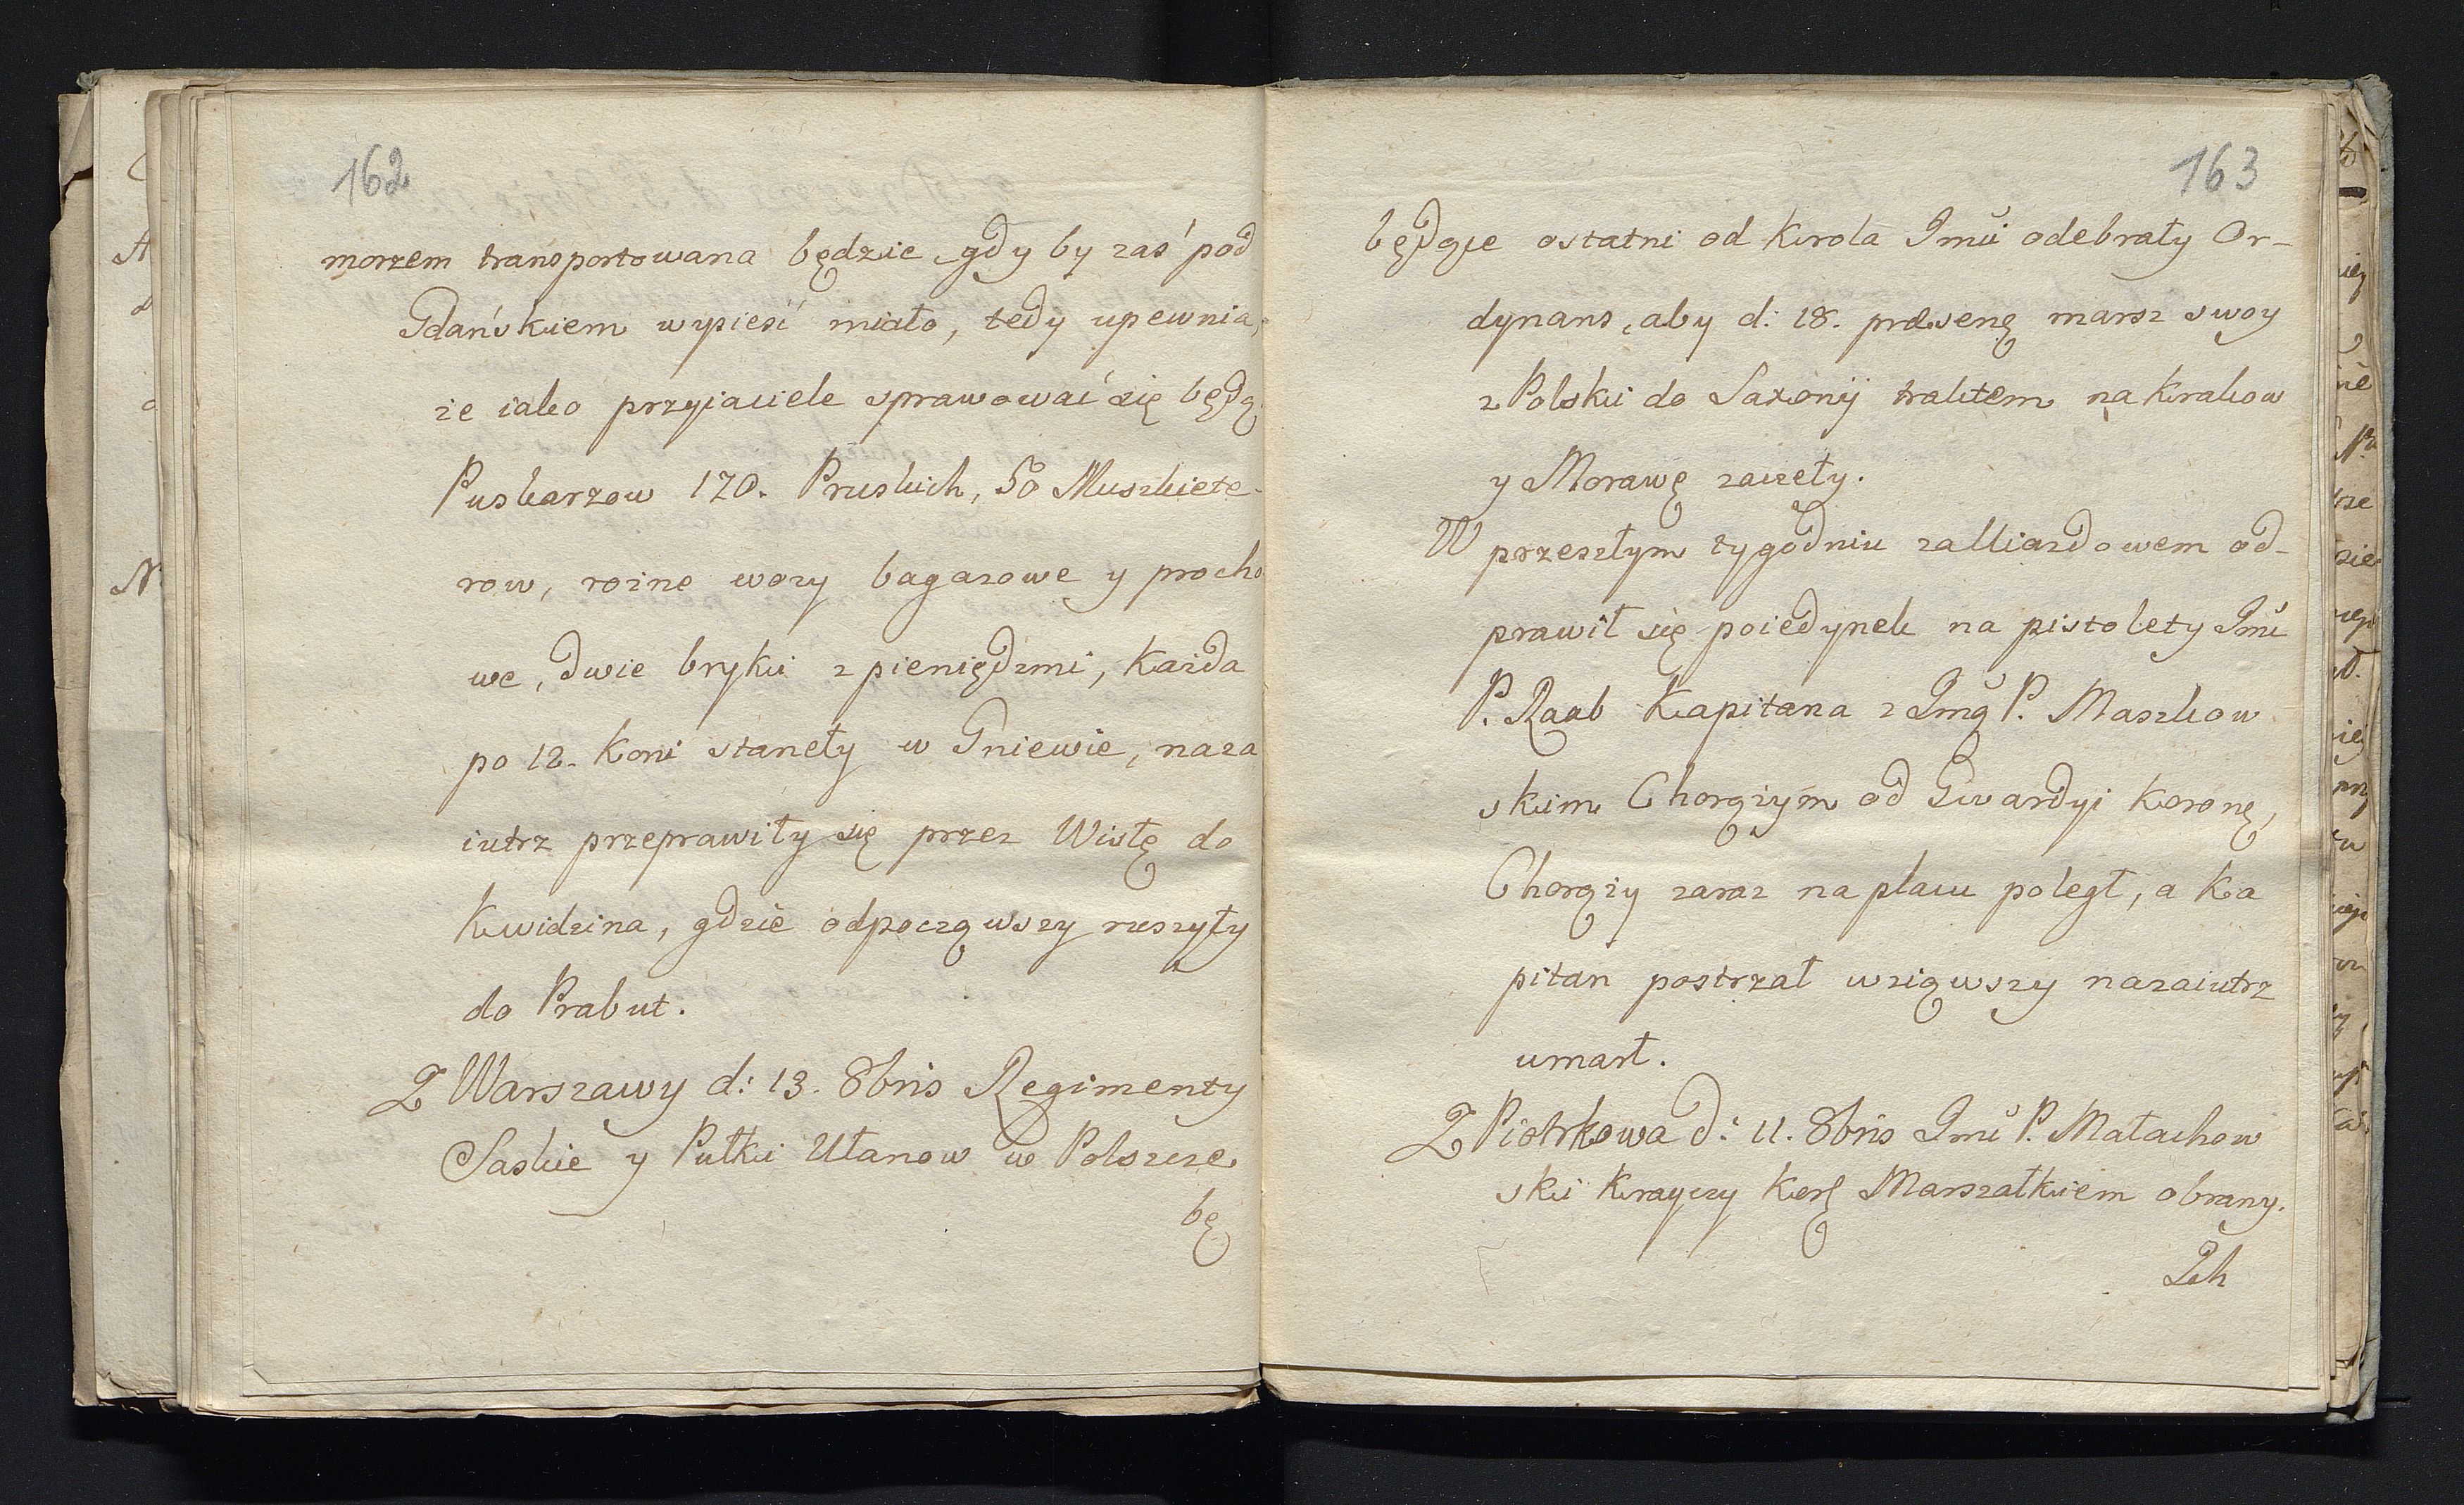 162
morzem transportowana będzie, gdy by zaś pod
Gdańskiem wysieść miało, tedy upewnia,
że iako przyjaciele sprawować się będą.
Puskarzow 170. Pruskich, 50 Muszkiete-
row, rożne wozy bagazowe y procho
we, dwie bryki z pieniędzmi, każda
po 12. koni staneły w Gniewie, naza
iutrz przeprawiły się przez Wisłę do
Kwidzina, gdzie odpocząwszy ruszyły
do Prabut.
Z Warszawy d: 13. 8bris Regimenty
Saskie y Pułki Ułanow w Polszcze
bę
163
będące ostatni od Krola Jmći odebrały Or-
dynans, aby d: 18. præsenę marsz swoy
z Polski do Saxonij traktem na Krakow
y Morawę zaczeły.
W przeszłym tygodniu za Uiazdowem od-
prawił się poiedynek na pistolety Jmći
P. Raab Kapitana z Jmą P. Maszkow
skim Chorążym od Gwardyi Koronę,
Chorąży zaraz na placu poległ, a Ka
pitan postrzał wziąwszy nazaiutrz
umarł.
Z Piotrkowa d: 11. 8bris Jmć P. Małachow
ski Krayczy Korę Marszałkiem obrany.